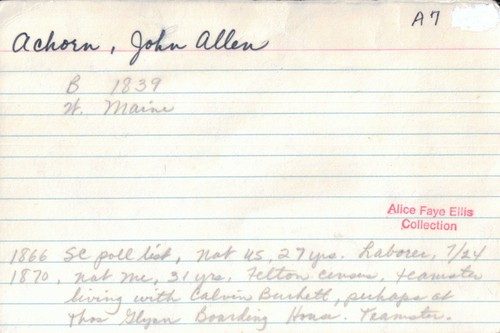 A7
Achorn, John Allen
B 1839
N. Maine
Alice Faye Ellis
Collection
1866 SC poll list, Nat US, 27 yrs. Laborer, 7/24
1870, nat Me, 31 yrs, Felton census, teamster
living with Calvin Burkett, perhaps at
Thos Glynn Boarding House. Teamster.